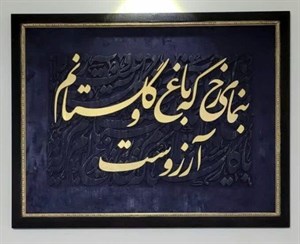 بنمای رخ که باغ و گلستانم
آرزوست